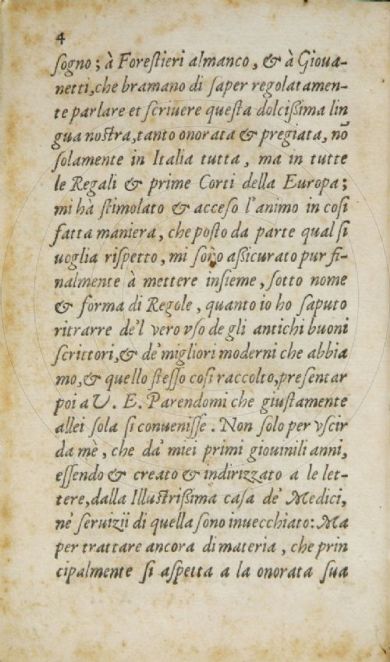 4
ſogno; à Foreſtieri almanco, & à Gioua-
netti, che bramano di ſaper regolatamen-
te parlare et ſcriuere queſta dolciſsima lin
gua noſtra, tanto onorata & pregiata, nō
ſolamente in Italia tutta, ma in tutte
le Regali & prime Corti della Europa;
mi hà ſtimolato & acceſo l'animo in coſi
fatta maniera, che poſto da parte qual ſi
uoglia riſpetto, mi ſono aſsicurato pur fi-
nalmente à mettere inſieme, ſotto nome
& forma di Regole, quanto io ho ſaputo
ritrarre de'l vero vſo de gli antichi buoni
ſcrittori, & de' migliori moderni che abbia
mo, & quello ſteſſo coſi raccolto, preſentar
poi a V. E. Parendomi che giuſtamente
allei ſola ſi conueniſſe. Non ſolo per vſcir
da mè, che da' miei primi giouinili anni,
eſſendo & creato & indirizzato a le let-
tere, dalla Illuſtriſsima caſa de' Medici,
ne' ſeruizii di quella ſono inuecchiato: Ma
per trattare ancora di materia, che prin
cipalmente ſi aſpetta a la onorata ſua